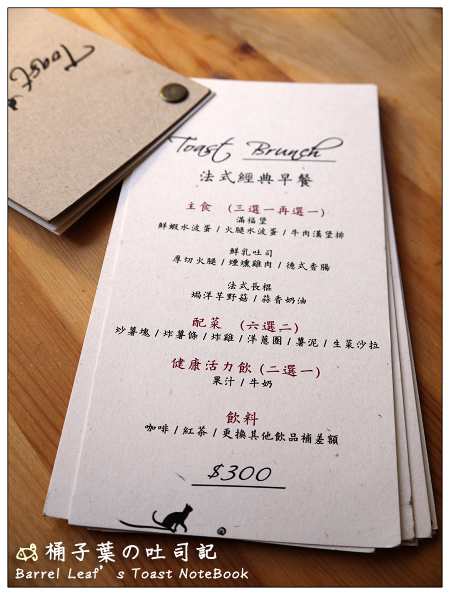 Toast
Toast Brunch
法式經典早餐
主食 (三選一再選一)
滿福堡
鮮蝦水波蛋 / 火腿水波蛋 / 牛肉漢堡排
鮮乳吐司
厚切火腿 / 煙燻雞肉 / 德式香腸
法式長棍
焗洋芋野菇 / 蒜香奶油
配菜 (六選二)
炒薯塊 / 炸薯條 / 炸雞 / 洋蔥圈 / 薯泥 / 生菜沙拉
健康活力飲 (二選一)
果汁 / 牛奶
飲料
咖啡 / 紅茶 / 更換其他飲品補差額
$300
桶子葉の吐司記
Barrel Leaf's Toast NoteBook